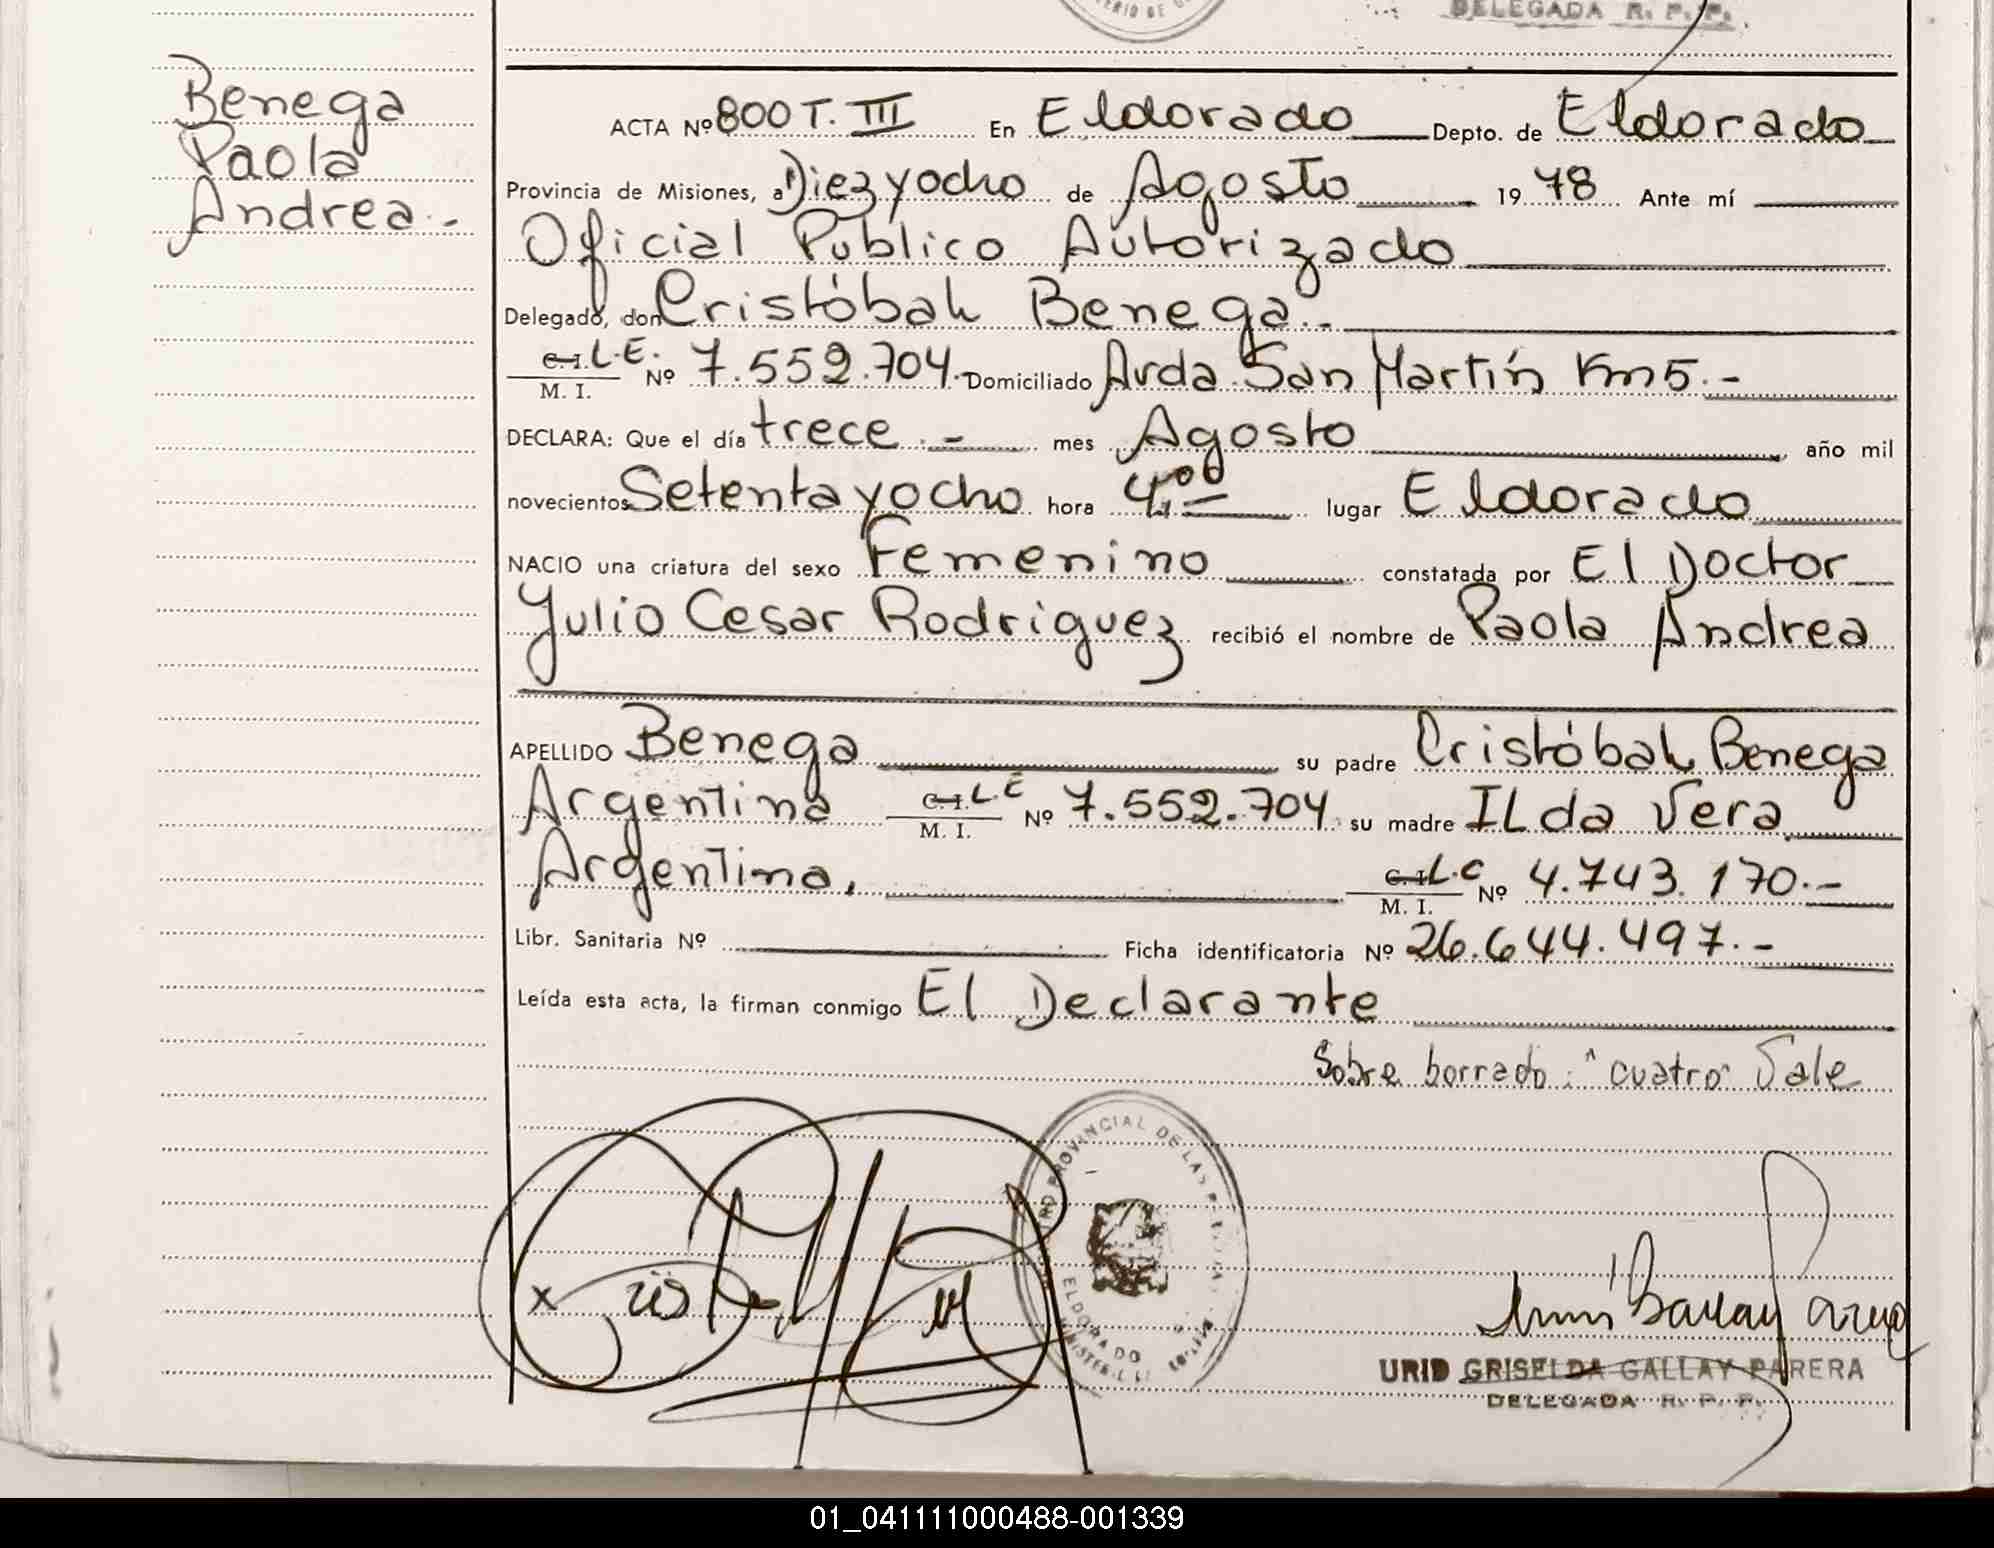 DELEGADA R. P. P.
Benega
Paola
Andrea.-
ACTA Nº 800 T. III En Eldorado Depto. de Eldorado
Provincia de Misiones, a Diezyocho de Agosto 1978 Ante mí
Oficial Publico Autorizado
Delegado, don Cristóbal Benega.-
C.I. L.E. Nº 7.552.704.- Domiciliado Avda. San Martín Km 5.-
M. I.
DECLARA: Que el día trece.- mes Agosto año mil
novecientos Setentayocho hora 4,00 lugar Eldorado
NACIO una criatura del sexo Femenino constatada por El Doctor
Julio Cesar Rodriguez recibió el nombre de Paola Andrea
APELLIDO Benega su padre Cristóbal Benega
Argentina C.I. L.E Nº 7.552.704 su madre ILda Vera
M. I.
Argentina. C.I. L.C Nº 4.743.170.-
M. I.
Libr. Sanitaria Nº Ficha identificatoria Nº 26.644.497.-
Leída esta acta, la firman conmigo El Declarante
Sobre borrado: "cuatro" Vale
PROVINCIAL DE LAS
ELDORADO
URID GRISELDA GALLAY PARERA
DELEGADA R. P. P.
01_041111000488-001339